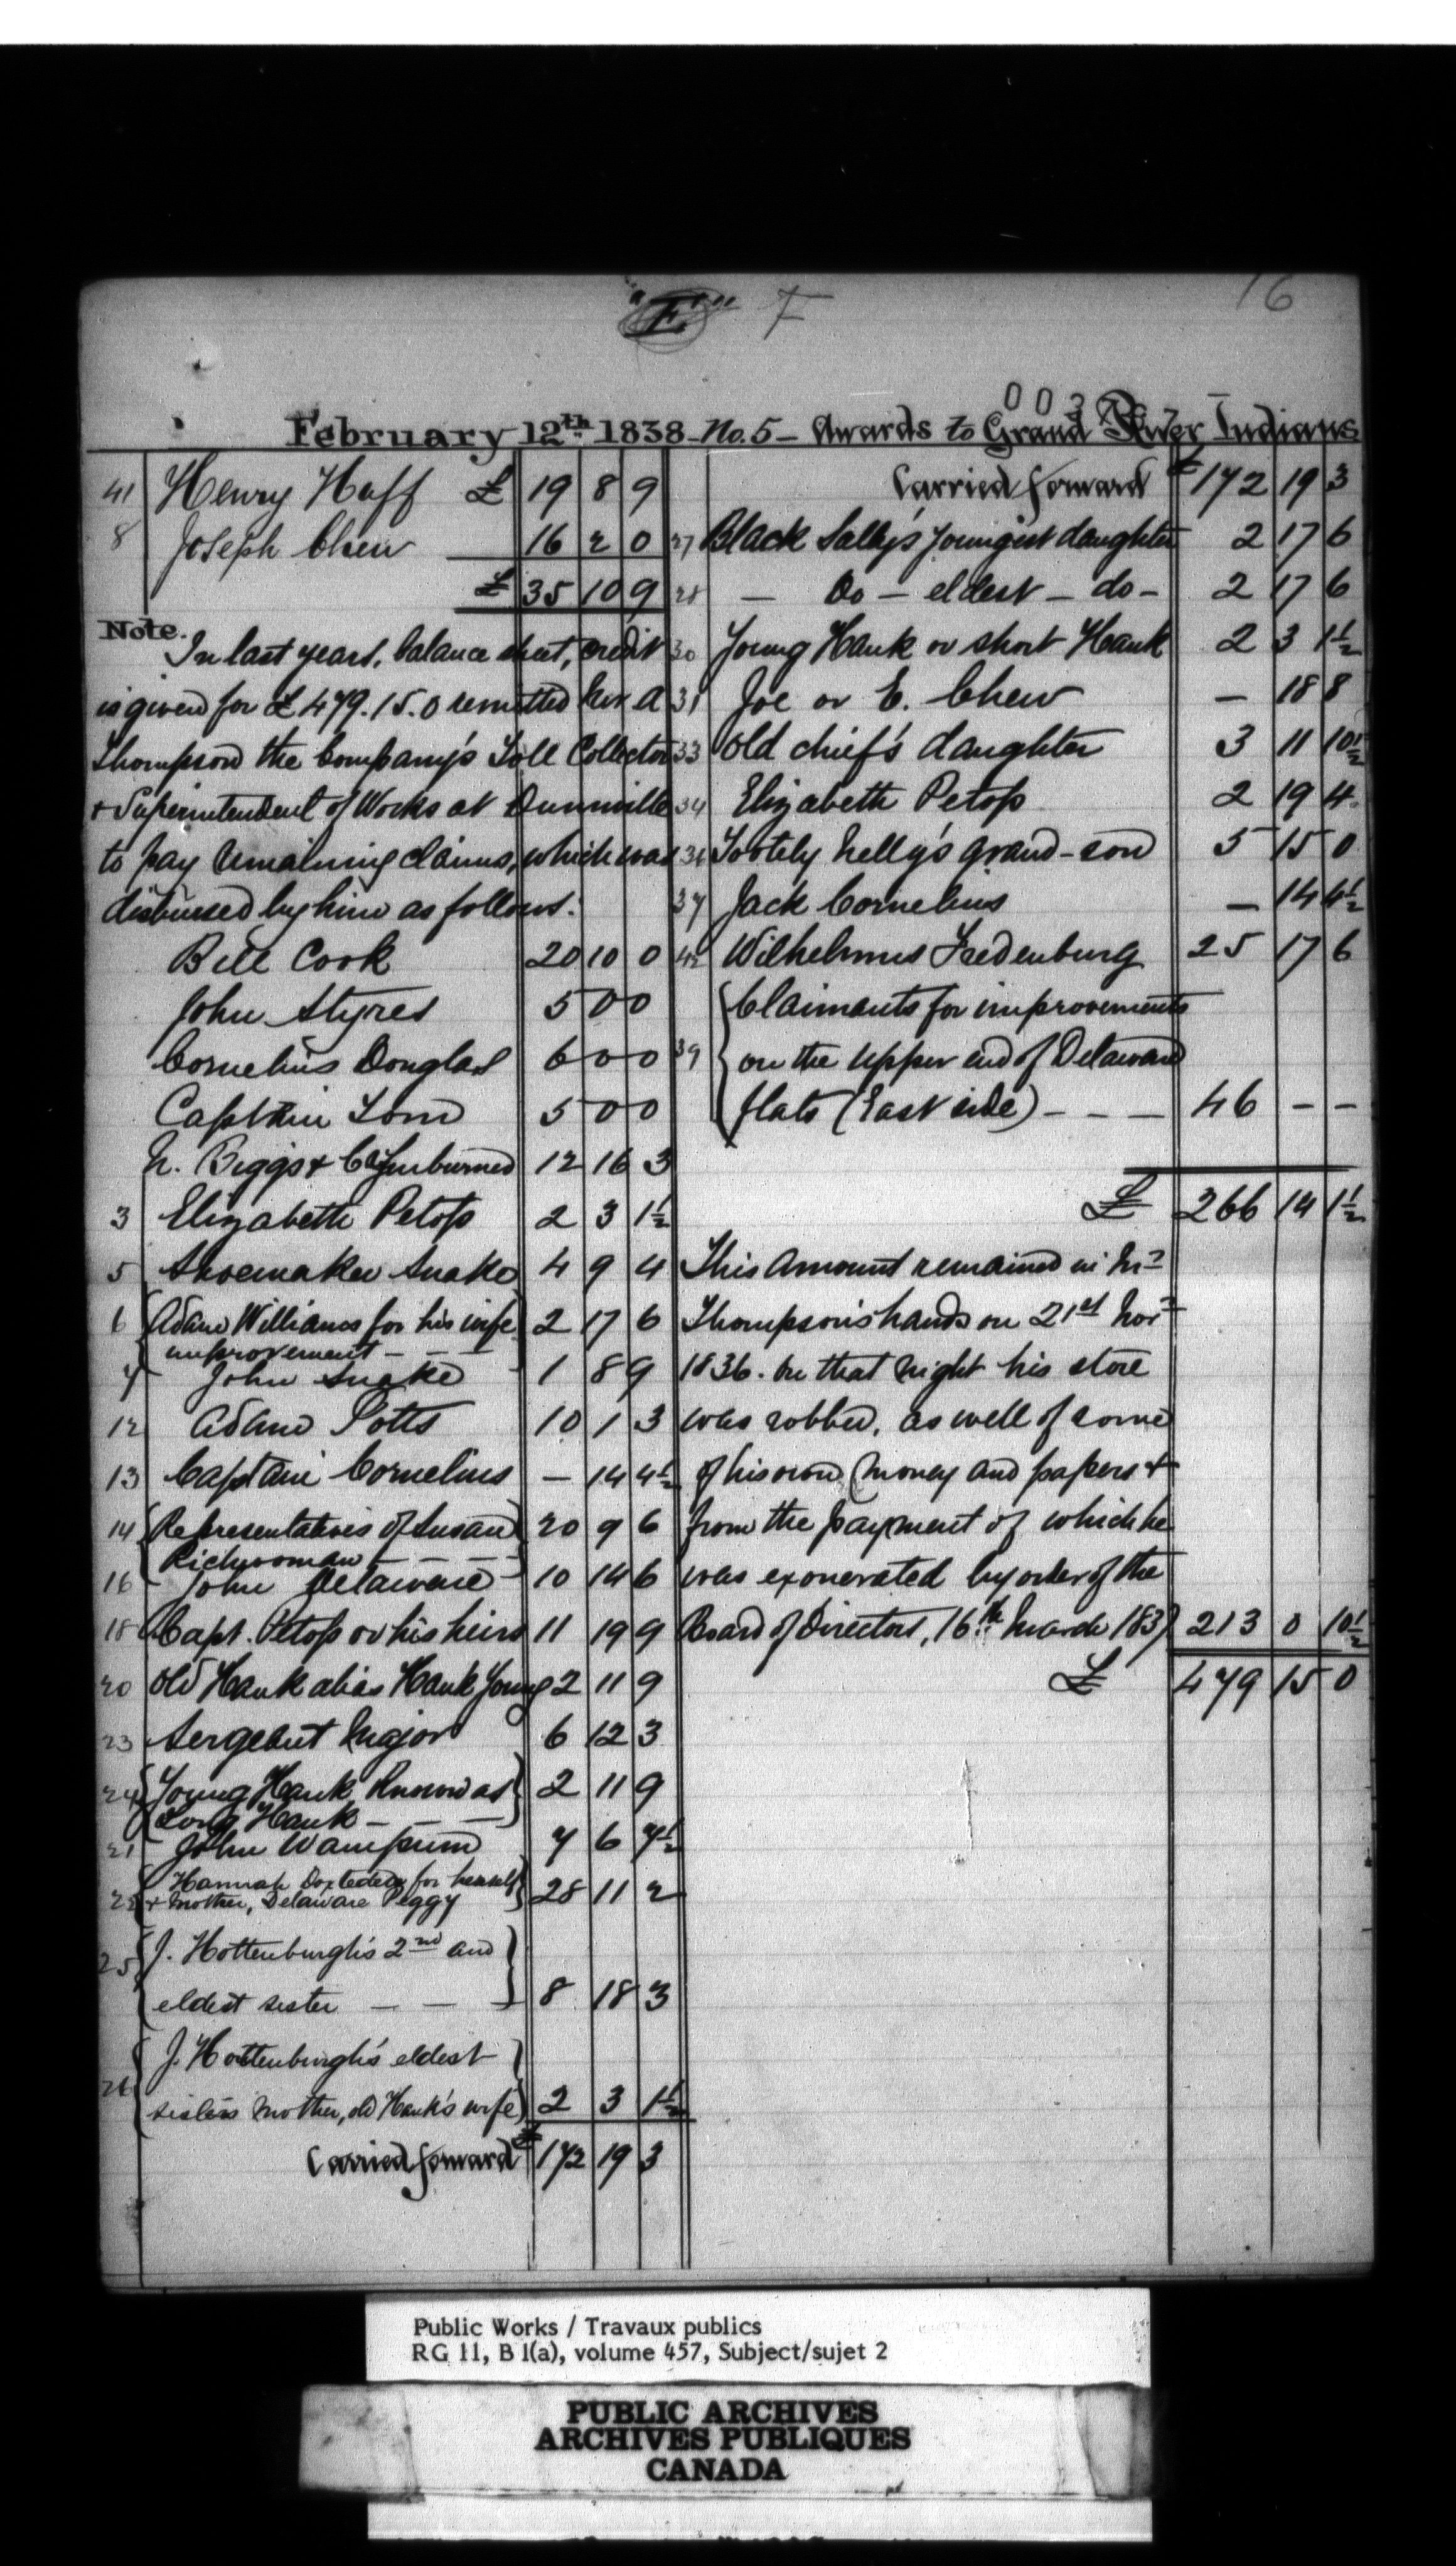 16
"F" F
003
February 12th 1838 - No. 5 - Awards to Grand River Indians
41 Henry Huff £ 19 8 9
8 Joseph Chew 16 2 0
£ 35 10 9
Note.
In last years, balance sheet, credit
is given for £479.15.0 remitted A
Thompson the Company's Toll Collector
& Superintendent of Works at Dunnville
to pay remaining claims, which was
disbursed by him as follows:
Bill Cook 20 10 0
John Styres 5 0 0
Cornelius Douglas 6 0 0
Captain Tom 5 0 0
N. Biggs & 12 16 3
3 Elizabeth Petoss 2 3 1½
5 Shoemaker Snake 4 9 4
6 Adam Williams for his wife 2 17 6
improvement - - -
7 John Snake 1 8 9
12 Adam Potts 10 1 3
13 Captain Cornelius - 14 4½
14 Representatives of Susan 20 9 6
Richwoman - - -
16 John Delaware 10 14 6
18 Capt. Petoss or his heirs 11 19 9
20 Old Hank alias Hank Young 2 11 9
23 Sergeant Major 6 12 3
24 Young Hank Known as 2 11 9
Long Hank - - -
21 John Wampum 7 6 7½
22 Hannah Doxteder for herself
& Mother, Delaware Peggy 28 11 2
25 J. Hottenburgh's 2nd and
eldest sister - - - 8 18 3
26 J. Hottenburgh's eldest
sisters Mother, old Hank's wife 2 3 1½
Carried forward £ 172 19 3
Carried forward £ 172 19 3
27 Black Sally's youngest daughter 2 17 6
28 - Do - eldest - do - 2 17 6
30 Young Hank or short Hank 2 3 1½
31 Joe or E. Chew - 18 8
33 Old chief's daughter 3 11 10½
34 Elizabeth Petoss 2 19 4
36 Nelly's grand-son 5 15 0
37 Jack Cornelius - 14 4½
42 Wilhelmus Fredenburg 25 17 6
Claimants for improvements
39 on the upper end of Delaware
flats (East side) - - - 46 - -
£ 266 14 1½
This amount remained in Mr
Thompson's hands on 21st Nov
1836. On that night his store
was robbed, as well of some
of his own money and papers &
from the payment of which he
was exonerated by order of the
Board of Directors, 16th March 1837 213 0 10½
£ 479 15 0
Public Works / Travaux publics
RG 11, B 1(a), volume 457, Subject/sujet 2
PUBLIC ARCHIVES
ARCHIVES PUBLIQUES
CANADA